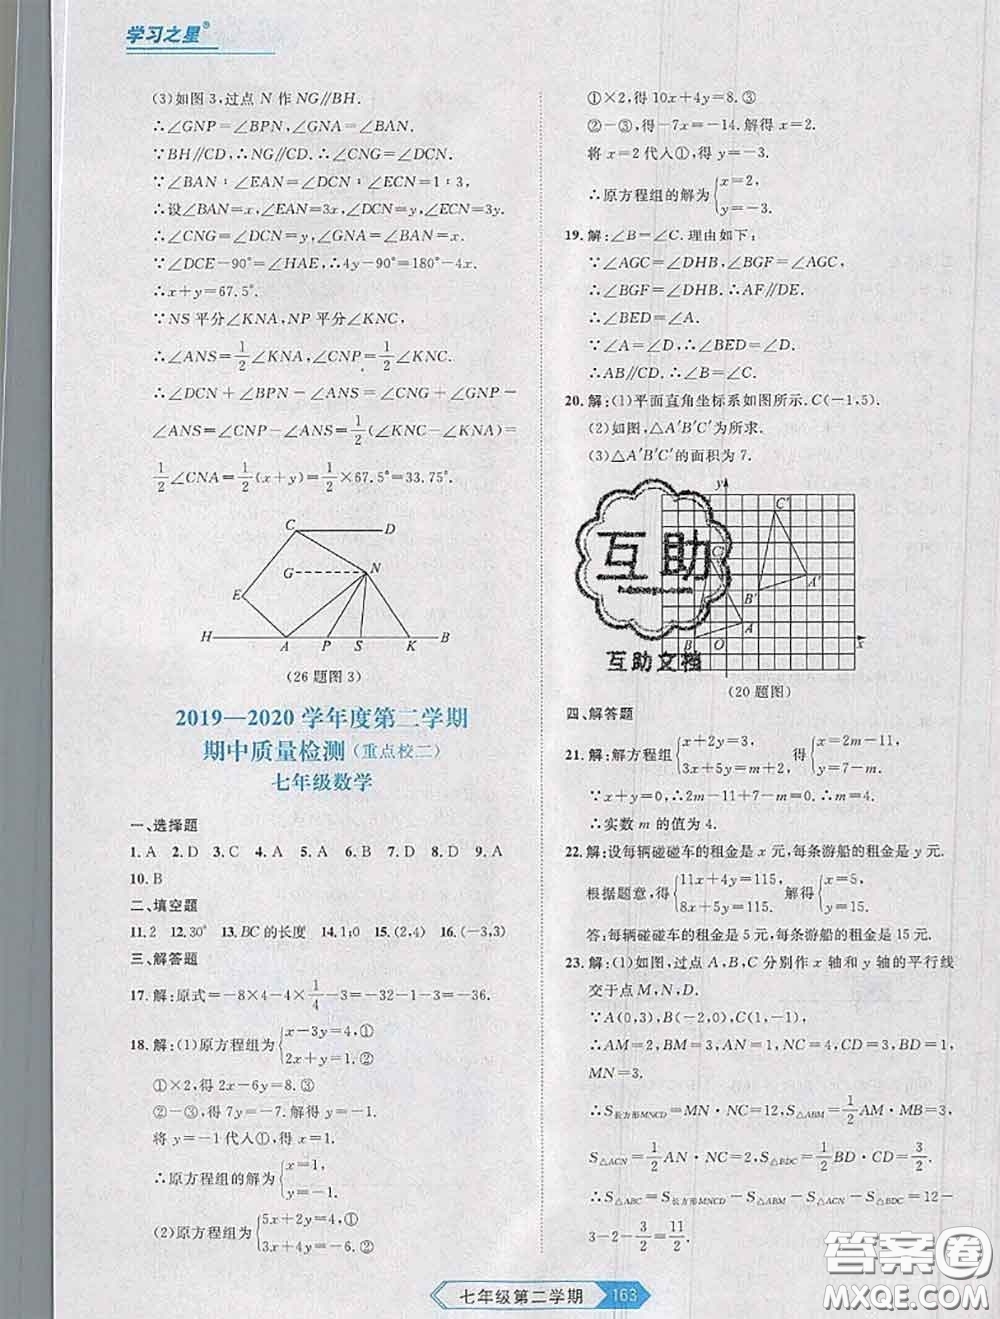 学习之星®
(3)如图3,过点 N 作 NG∥BH.
∴∠GNP=∠BPN,∠GNA=∠BAN.
∵BH∥CD,∴NG∥CD.∴∠CNG=∠DCN.
∵∠BAN∶∠EAN=∠DCN∶∠ECN=1∶3,
∴设∠BAN=x,∠EAN=3x,∠DCN=y,∠ECN=3y.
∴∠CNG=∠DCN=y,∠GNA=∠BAN=x.
∵∠DCE-90°=∠HAE,∴4y-90°=180°-4x.
∴x+y=67.5°.
∵NS 平分∠KNA,NP 平分∠KNC,
∴∠ANS=1/2∠KNA,∠CNP=1/2∠KNC.
∴∠DCN+∠BPN-∠ANS=∠CNG+∠GNP-
∠ANS=∠CNP-∠ANS=1/2(∠KNC-∠KNA)=
1/2∠CNA=1/2(x+y)=1/2×67.5°=33.75°.
C D
G N
E
H A P S K B
(26题图3)
2019—2020学年度第二学期
期中质量检测(重点校二)
七年级数学
一、选择题
1.A 2.D 3.C 4.A 5.A 6.B 7.D 8.D 9.A
10.B
二、填空题
11.2 12.30° 13.BC 的长度 14.1:0 15.(2,4) 16.(-3,3)
三、解答题
17.解:原式=-8×4-4×1/4-3=-32-1-3=-36.
18.解:(1)原方程组为{x-3y=4,①
2x+y=1.②
①×2,得 2x-6y=8.③
②-③,得 7y=-7.解得 y=-1.
将 y=-1代入①,得 x=1.
∴原方程组的解为{x=1,
y=-1.
(2)原方程组为{5x+2y=4,①
3x+4y=-6.②
①×2,得 10x+4y=8.③
②-③,得-7x=-14.解得 x=2.
将 x=2 代入①,得 y=-3.
∴原方程组的解为{x=2,
y=-3.
19.解:∠B=∠C.理由如下:
∵∠AGC=∠DHB,∠BGF=∠AGC,
∴∠BGF=∠DHB.∴AF∥DE.
∴∠BED=∠A.
∵∠A=∠D,∴∠BED=∠D.
∴AB∥CD.∴∠B=∠C.
20.解:(1)平面直角坐标系如图所示.C(-1,5).
(2)如图,△A′B′C′为所求.
(3)△A′B′C′的面积为7.
y
C′
C
A′
B′
A
B O x
互助
互助文档
(20题图)
四、解答题
21.解:解方程组{x+2y=3,
3x+5y=m+2, 得{x=2m-11,
y=7-m.
∵x+y=0,∴2m-11+7-m=0.∴m=4.
∴实数 m 的值为4.
22.解:设每辆碰碰车的租金是 x 元,每条游船的租金是 y 元.
根据题意,得{11x+4y=115,
8x+5y=115, 解得{x=5,
y=15.
答:每辆碰碰车的租金是5元,每条游船的租金是15元.
23.解:(1)如图,过点 A,B,C 分别作 x 轴和 y 轴的平行线
交于点 M,N,D.
∵A(0,3),B(-2,0),C(1,-1),
∴AM=2,BM=3,AN=1,NC=4,CD=3,BD=1,
MN=3.
∴S长方形MNCD=MN·NC=12,S△ABM=1/2AM·MB=3,
S△ACN=1/2AN·NC=2,S△BDC=1/2BD·CD=3/2.
∴S△ABC=S长方形MNCD-S△ABM-S△ACN-S△BDC=12-
3-2-3/2=11/2.
七年级第二学期 163
答案卷
MXQE.COM